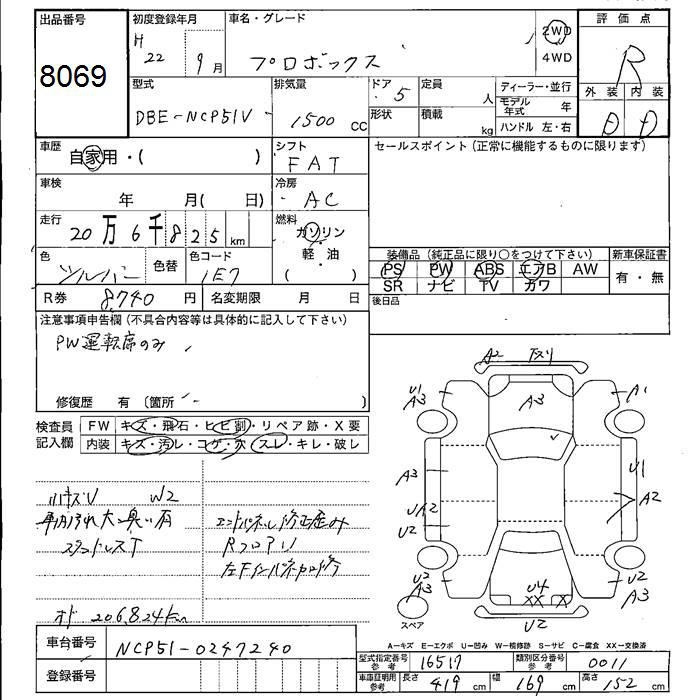 出品番号
8069
初度登録年月
H
22 9 月
車名・グレード
プロボックス
2WD
4WD
評価点
R
外装 内装
D D
型式
DBE-NCP51V
排気量
1500 CC
ドア
5
形状
定員
人
積載
kg
ディーラー・並行
モデル年式 年
ハンドル 左・右
車歴
自家用・( )
シフト
FAT
セールスポイント(正常に機能するものに限ります)
車検
年 月( 日)
冷房
AC
走行
20万6千825 km
燃料
ガソリン
軽・油
( )
色
シルバー
色替
色コード
1E7
装備品(純正品に限り○をつけて下さい)
PS PW ABS エアB AW
SR ナビ TV カワ
新車保証書
有・無
R券 8,740 円
名変期限 月 日
後日品
注意事項申告欄(不具合内容等は具体的に記入して下さい)
PW運転席のみ
修復歴 有 (箇所
検査員
記入欄
FW キズ・飛石・ヒビ割・リペア跡・X要
内装 キズ・汚レ・コゲ・穴・スレ・キレ・破レ
ハキズU W2
車内汚れ大 臭い有
スタッドレスT
エンドパネル修正歪み
Rフロアソリ
オド 206,824km
A2 下スリ
U1
A3
A3
A1
A3
A3
U1
A2
UA2
U2
U2
A3
U2
A3
U4
XX X
U2
スペア
A-キズ E-エクボ U-凹み W-補修跡 S-サビ C-腐食 XX-交換済
車台番号 NCP51-0247240
登録番号
型式指定番号
参考
16517
類別区分番号
参考
0011
車庫証明用
参考
長さ 419 cm
幅 169 cm
高さ 152 cm